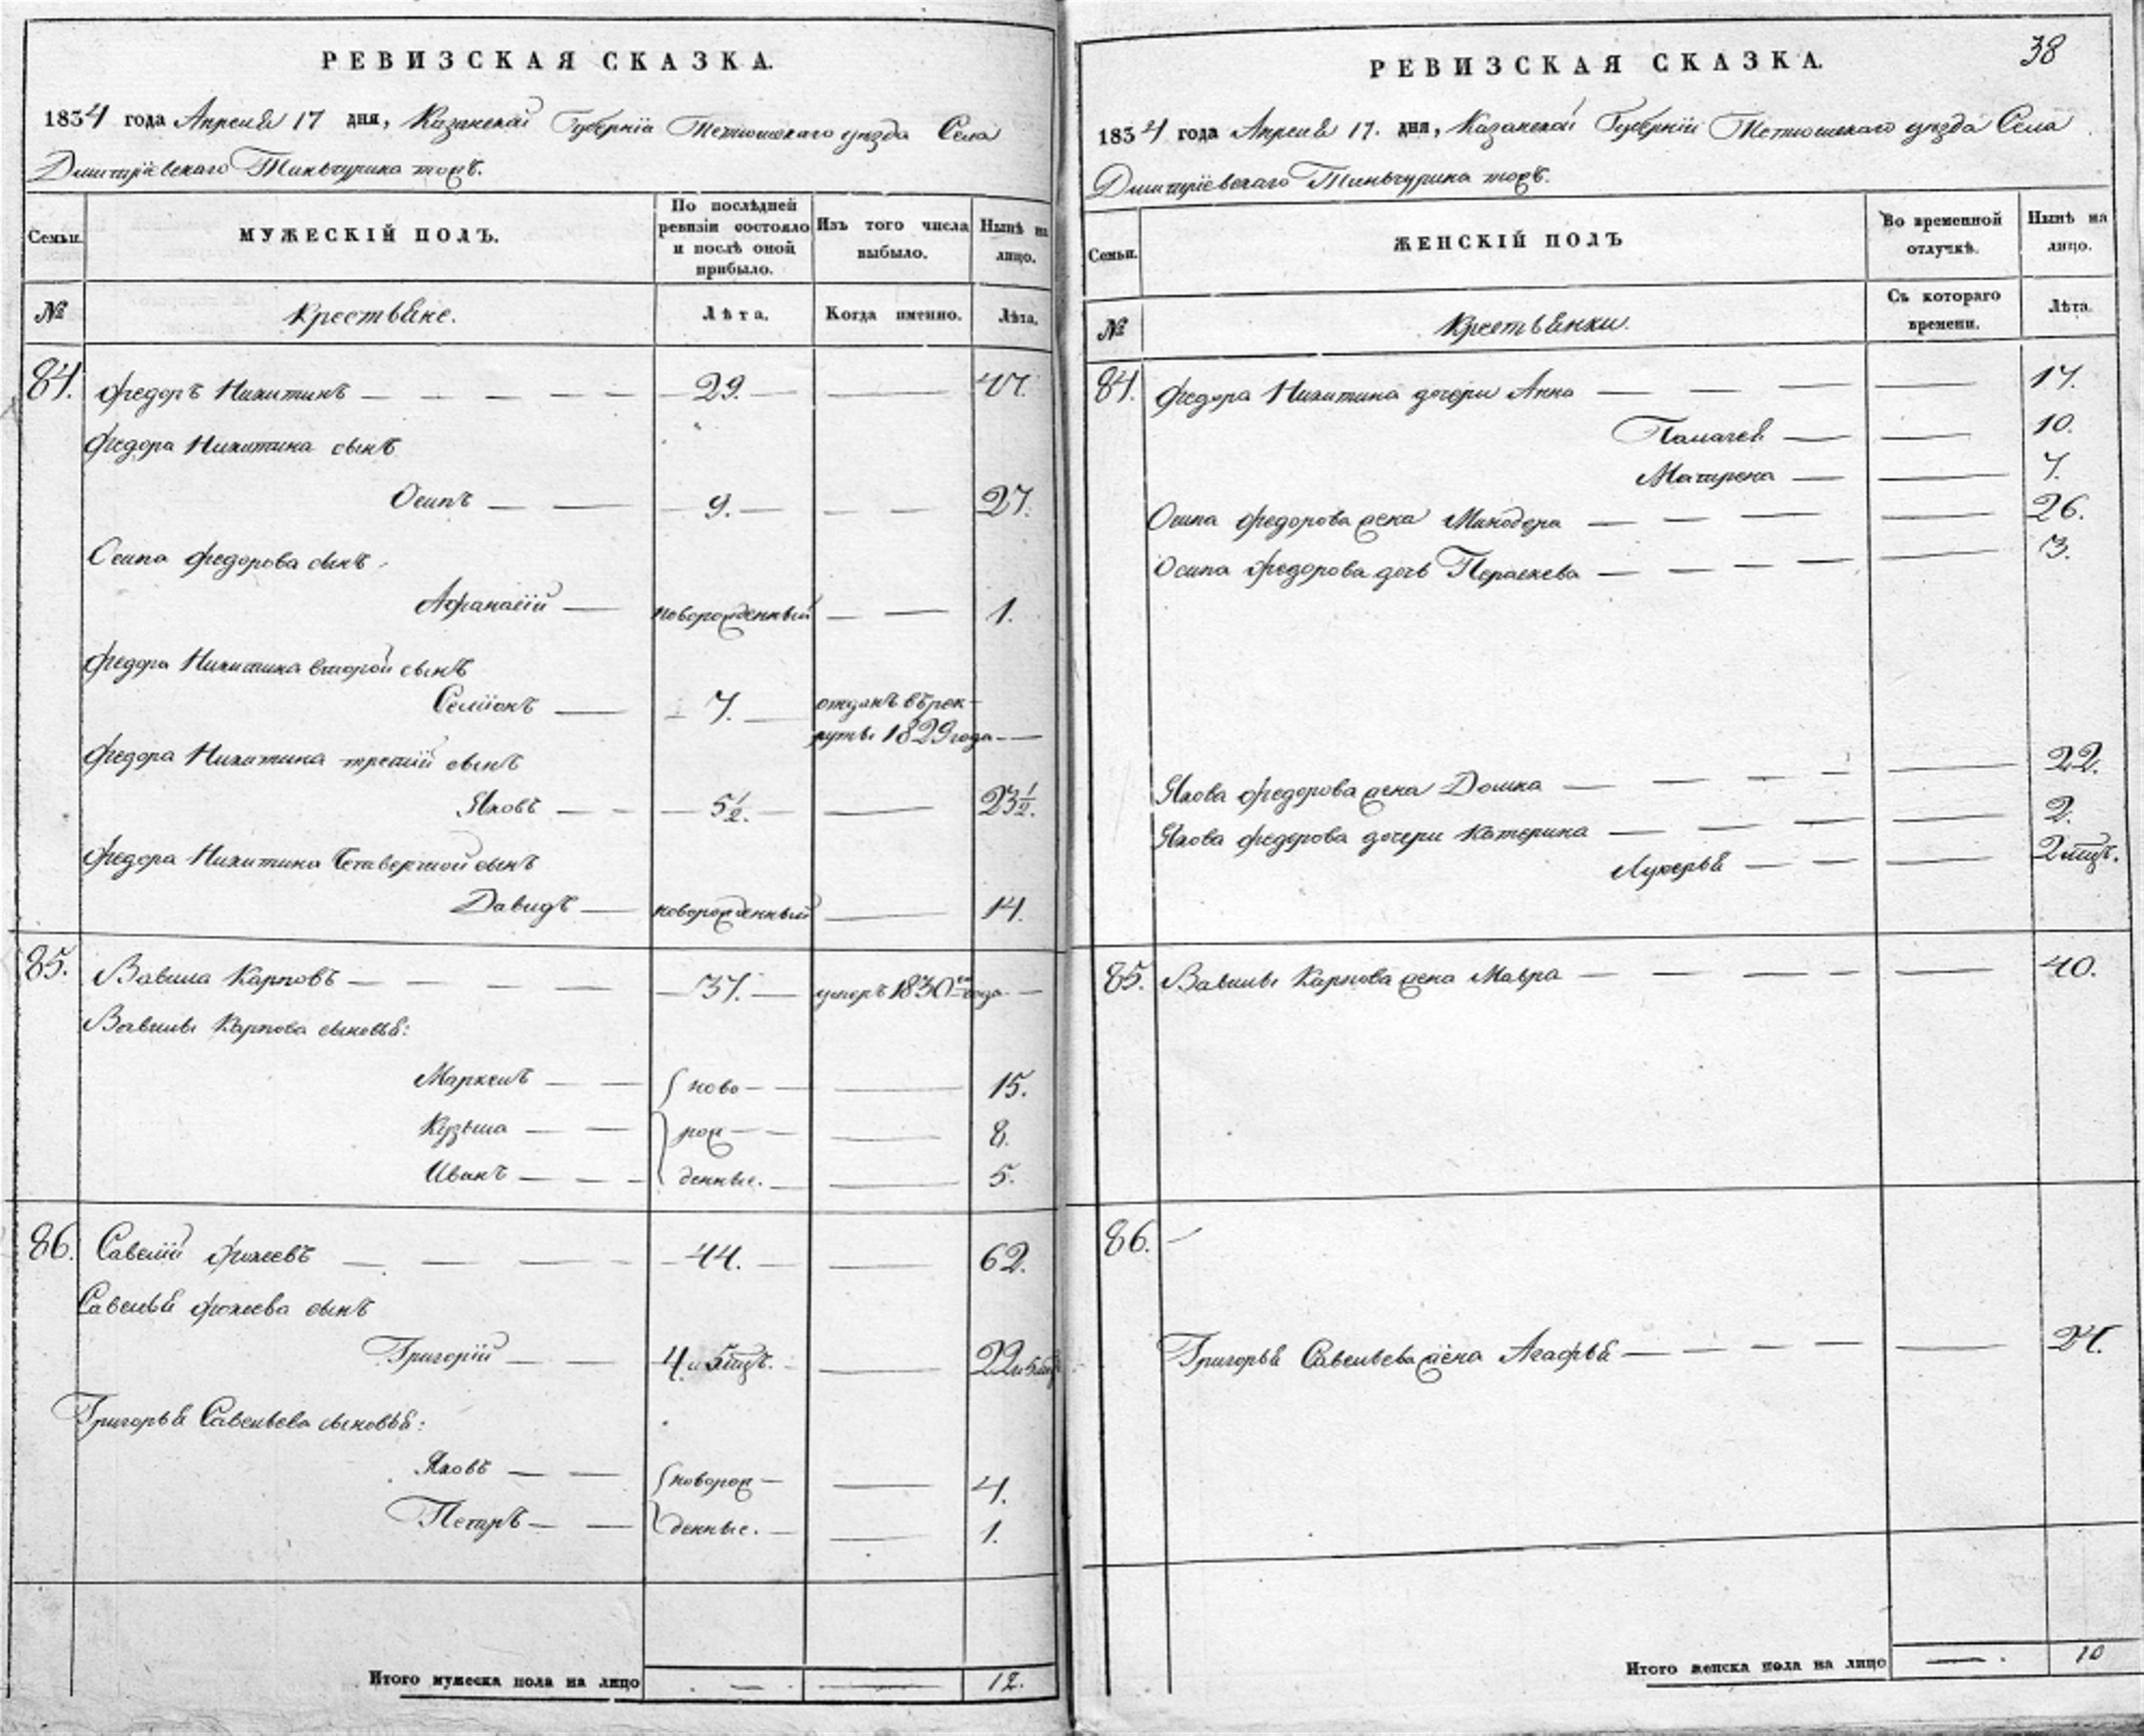 РЕВИЗСКАЯ СКАЗКА.
1834 года Апреля 17 дня, Казанской Губернiи Тетюшскаго уезда Села
Дмитрiевскаго Тиньчурина тожъ.
Семьи. МУЖЕСКIЙ ПОЛЪ. По послѣдней ревизiи состояло и послѣ оной прибыло. Изъ того числа выбыло. Нынѣ на лицо.
№ Крестьяне. Лѣта. Когда именно. Лѣта.
84. Федоръ Никитинъ — 29. — 47.
Федора Никитина сынъ
Осипъ — 9. — 27.
Осипа Федорова сынъ
Афанасiй — новорожденный — 1.
Федора Никитина второй сынъ
Семiонъ — 7. — отданъ въ рек-
руты 1829 года —
Федора Никитина третiй сынъ
Яковъ — 5½. — 23½.
Федора Никитина Четвертой сынъ
Давидъ — новорожденный — 14.
85. Вавила Карповъ — 37. — умеръ 1830го года —
Вавилы Карпова сыновья:
Маркелъ — ново — 15.
Кузьма — рож — 8.
Иванъ — денные. — 5.
86. Савелiй Фокеевъ — 44. — 62.
Савелья Фокеева сынъ
Григорiй — 4. и 5 мцъ. — 22 и 5 мцъ
Григорья Савельева сыновья:
Яковъ — новорож — 4.
Петръ — денные. — 1.
Итого мужеска пола на лицо — — 12.
38
РЕВИЗСКАЯ СКАЗКА.
1834 года Апреля 17. дня, Казанской Губернiи Тетюшскаго уезда Села
Дмитрiевскаго Тиньчурина тожъ.
Семьи. ЖЕНСКIЙ ПОЛЪ Во временной отлучкѣ. Нынѣ на лицо.
№ Крестьянки. Съ котораго времени. Лѣта.
84. Федора Никитина дочери Анна — 17.
Палагея — 10.
Матрена — 7.
Осипа Федорова жена Минодора — 26.
Осипа Федорова дочь Параскева — 3.
Якова Федорова жена Домна — 22.
Якова Федорова дочери Катерина — 2.
Лукерья — 2 мцъ.
85. Вавилы Карпова жена Мавра — 40.
86. —
Григорья Савельева жена Агафья — 24.
Итого женска пола на лицо — 10